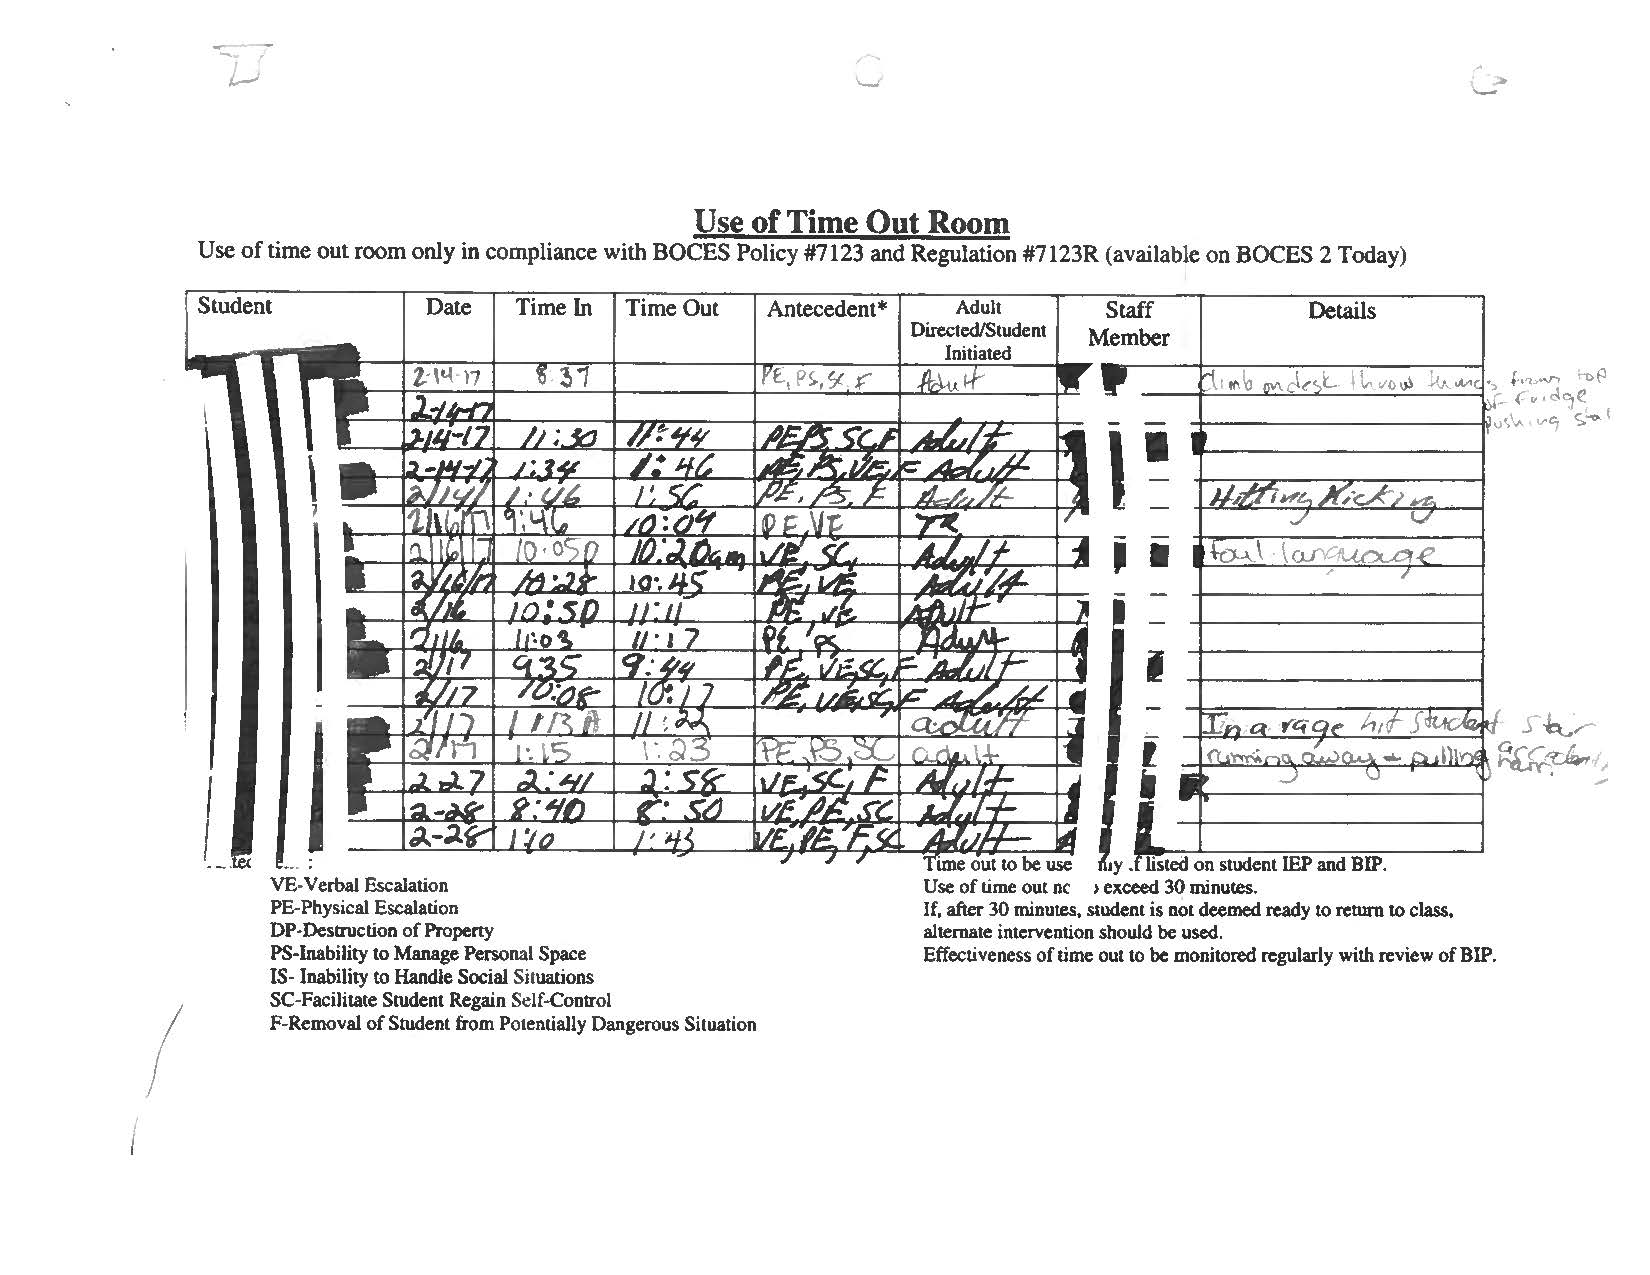 Use of Time Out Room
Use of time out room only in compliance with BOCES Policy #7123 and Regulation #7123R (available on BOCES 2 Today)
Student Date Time In Time Out Antecedent* Adult Directed/Student Initiated Staff Member Details
2-14-17 8 37 PE, PS, SC, F Adult Climb on desk throw things from top of fridge pushing
2-14-17
2-14-17 11:30 11:44 PE PS SC F Adult
2-14-17 1:34 1:46 PE, PS, VE, F Adult
2/14/ 1:46 1:56 PE, PS, F Adult Hitting Kicking
2/16/17 9:46 10:04 PE, VE
2/16/17 10:05 10:20am VE, SC, Adult foul language
2/16/17 10:28 10:45 PE, VE Adult
2/16 10:50 11:11 PE, VE Adult
2/16 11:03 11:17 PE, PS Adult
2/17 935 9:44 PE, VE, SC, F Adult
2/17 10:08 10:17 PE, VE, SC, F Adult
2/17 11:22 adult In a rage hit student
2/17 1:15 1:23 PE, PS, SC adult running away + pulling hair
2-27 2:41 2:58 VE, SC, F Adult
2-28 8:40 8:50 VE, PE, SC Adult
2-28 1:10 1:43 VE, PE, F, SC Adult
VE-Verbal Escalation
PE-Physical Escalation
DP-Destruction of Property
PS-Inability to Manage Personal Space
IS- Inability to Handle Social Situations
SC-Facilitate Student Regain Self-Control
F-Removal of Student from Potentially Dangerous Situation
Time out to be use listed on student IEP and BIP.
Use of time out exceed 30 minutes.
If, after 30 minutes, student is not deemed ready to return to class,
alternate intervention should be used.
Effectiveness of time out to be monitored regularly with review of BIP.